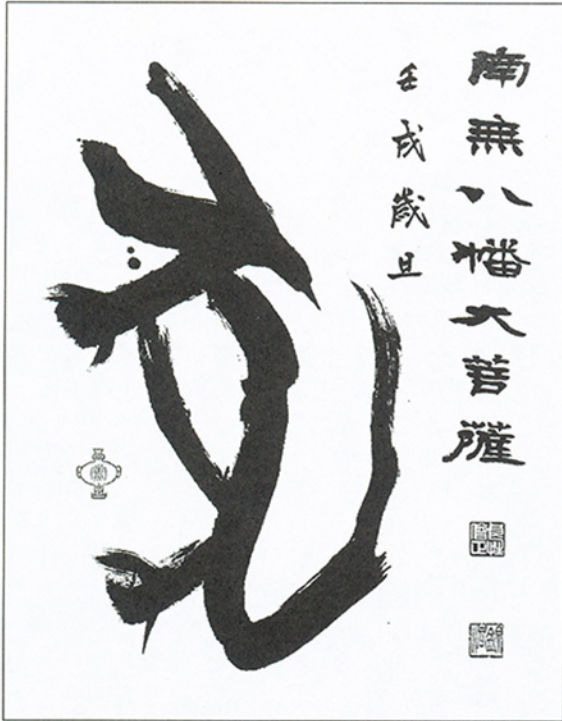 南無八幡大菩薩
壬戌歲旦